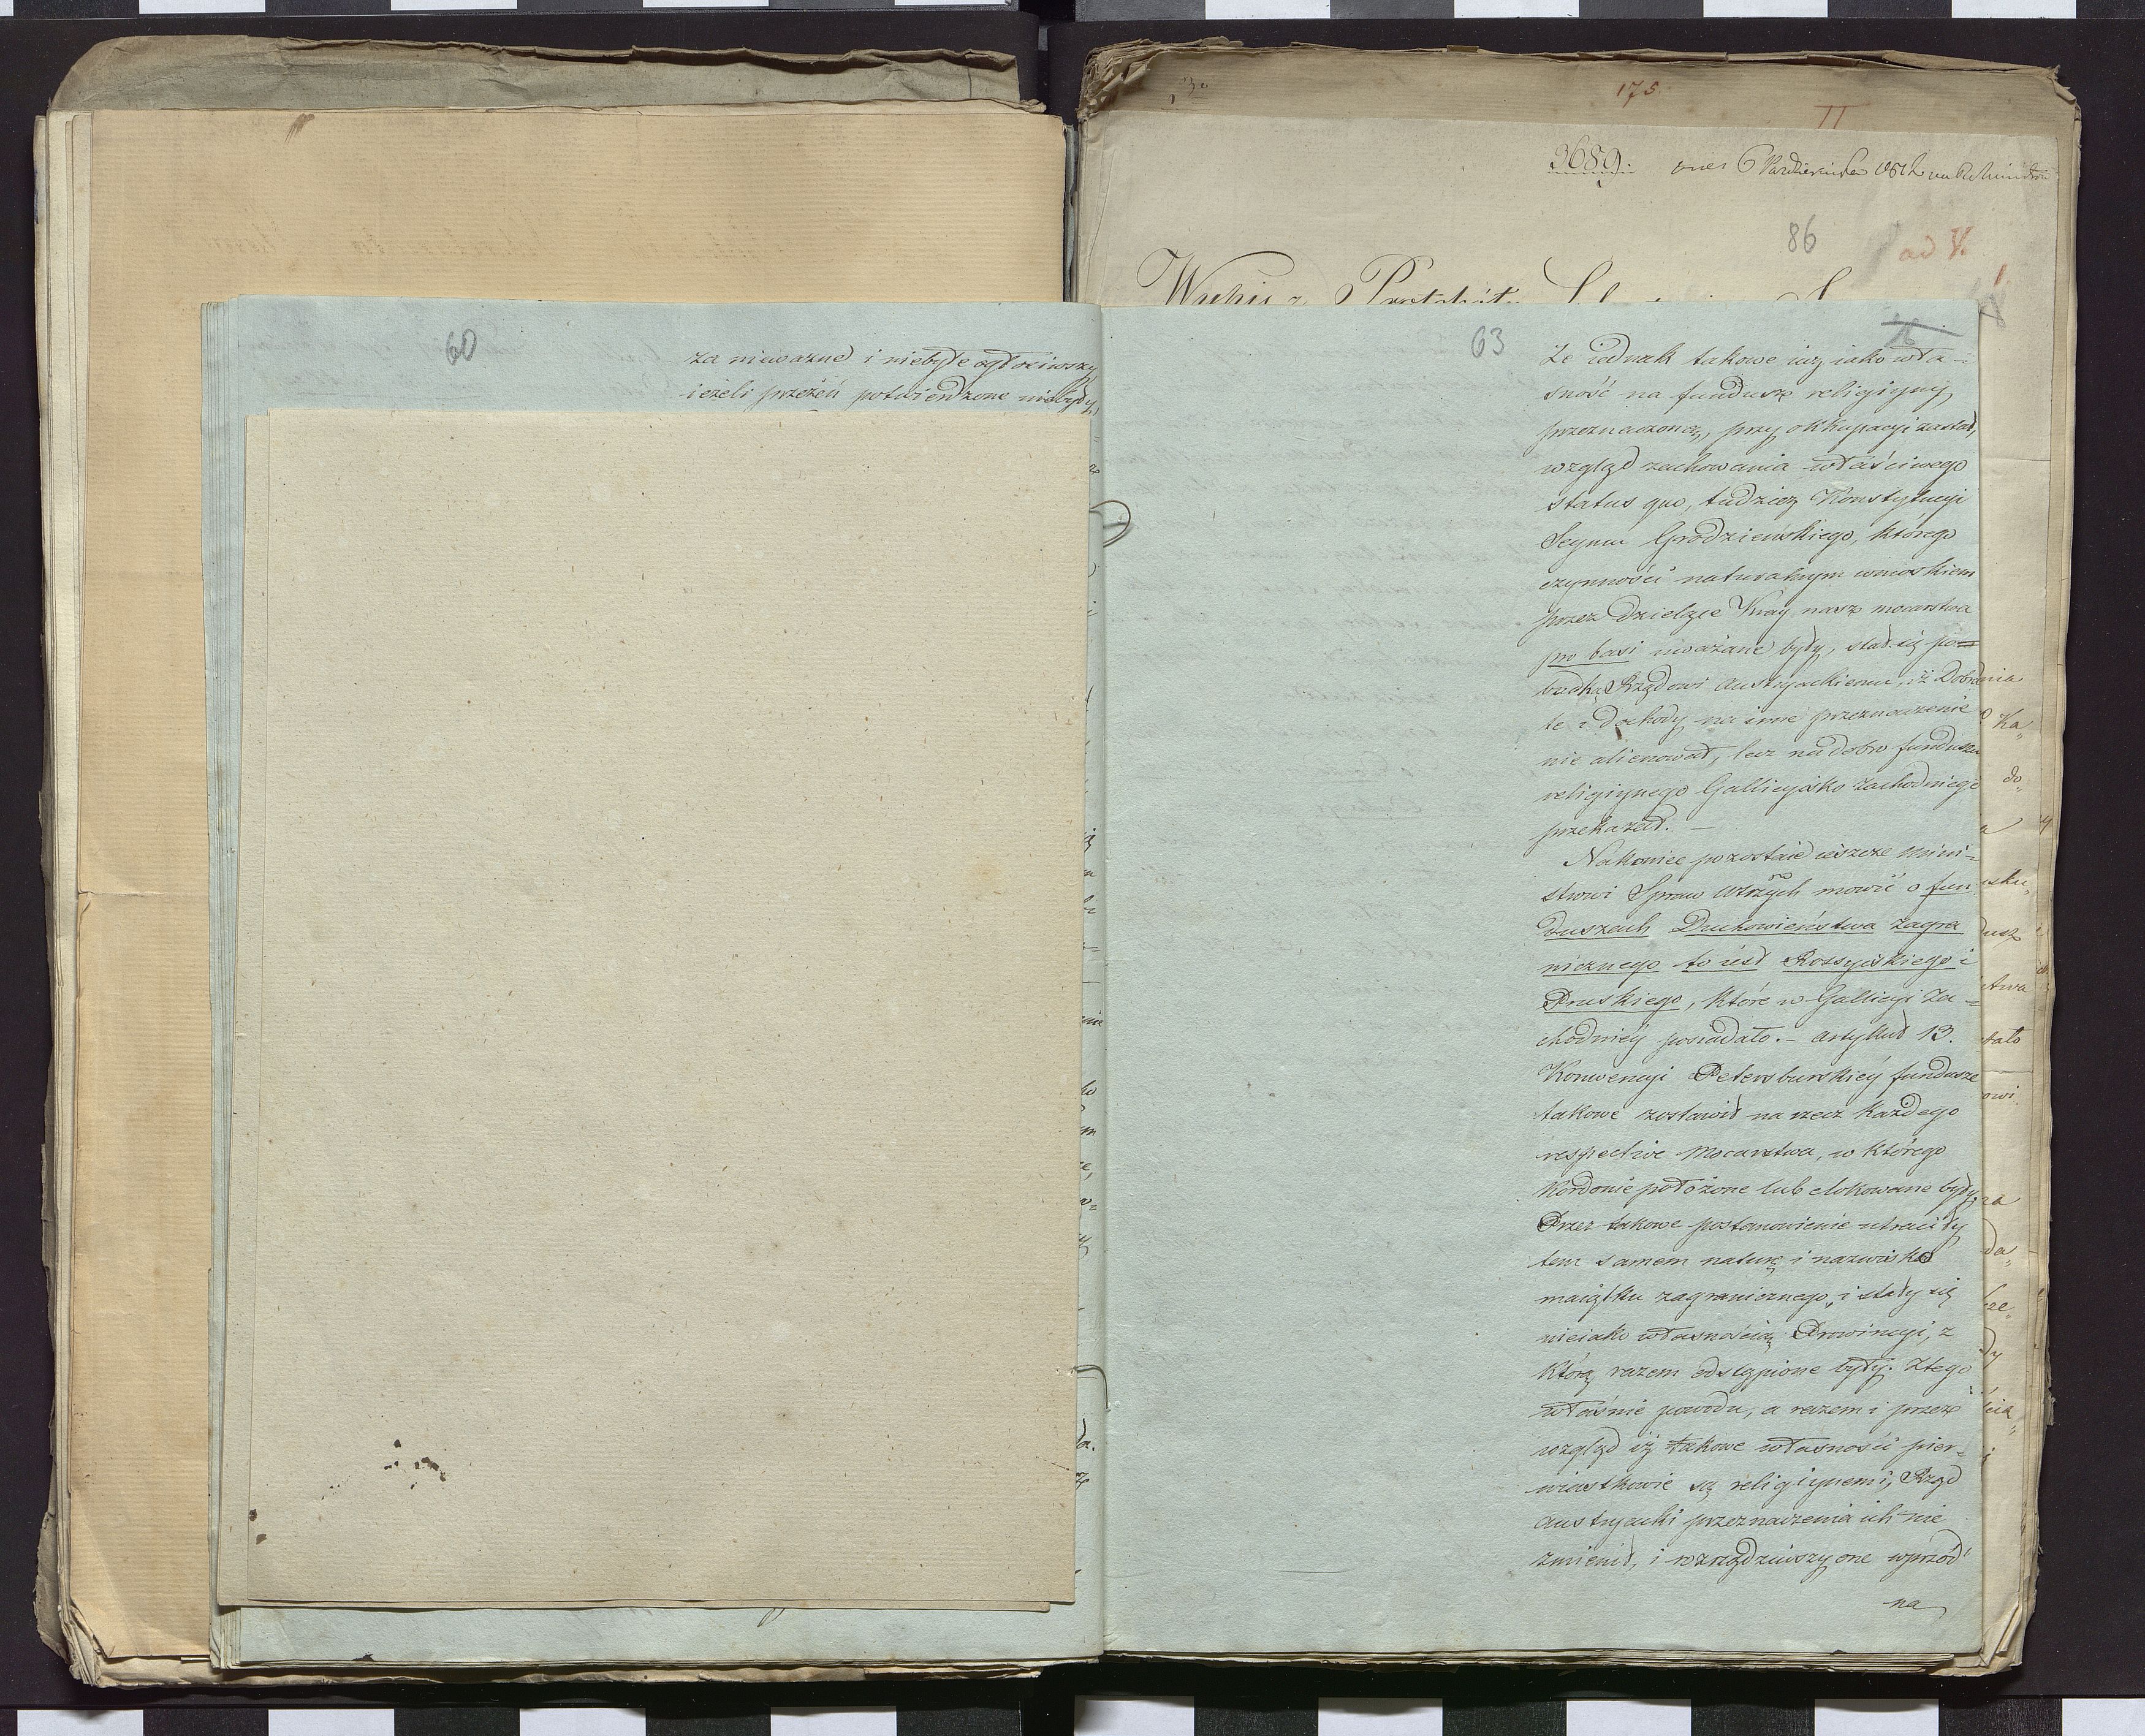 60
za nieważne i niebyłe ogłosiwszy,
ieżeli przezeń potwierdzone niebyły,
175
II
3689. dnia 6 Października 1812
86
ad V.
Wypis z Protokołu
63
że iednak takowe iuż iako wła-
sność na fundusz religiyny
przeznaczoną, przy okkupacyi zastał,
wzgląd zachowania właściwego
status quo, tudzież Konstytucyi
Seymu Grodzieńskiego, którego
czynności naturalnym wnioskiem
przez dzielące Kray nasz mocarstwa
pro basi uważane były, stał się po=
budką Rządowi Austryackiemu, iż Dobra
te i dochody na inne przeznaczenie
nie alienował, lecz na dobro funduszu
religiynego Gallicyisko zachodniego
przekazał. –
Nakoniec pozostaie ieszcze Mini=
strowi Spraw Wtrznych mowić o fun
duszach Duchowieństwa Zagra
nicznego to iest Rossyiskiego i
Pruskiego, które w Gallicyi Za=
chodniéy posiadało. – artykuł 13.
Konwencyi Petersburskiéy fundusze
takowe zostawił na rzecz każdego
respective Mocarstwa, w którego
Kordonie położone lub elokowane były,
Przez takowe postanowienie utraciły
tem samem naturę i nazwisko
maiątku zagranicznego, i stały się
nieiako własnością Prowincyi, z
którą razem odstąpione były. Ztego
właśnie powodu, a razem i przez
wzgląd iż takowe własności pier-
wiastkowie są religiynemi, Rząd
austryacki przeznaczenia ich nie
zmienił, i rozrządziwszy one wprzód
na